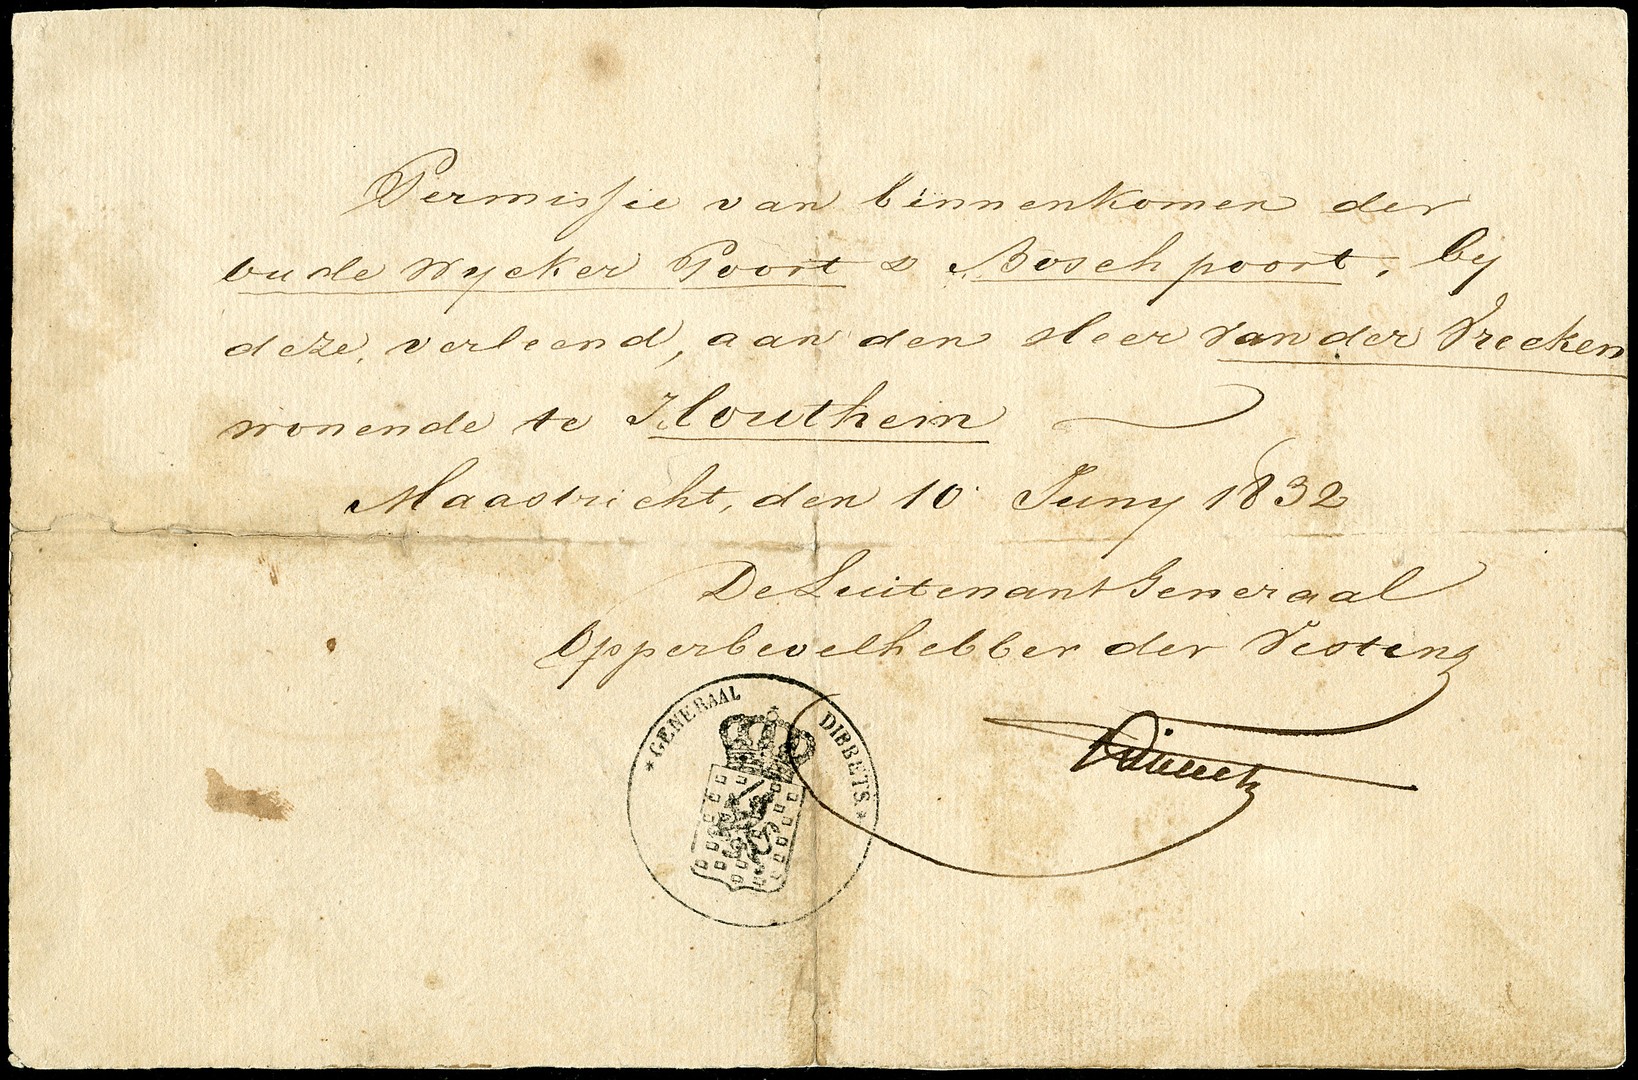 Permissie van binnenkomen der
oude Wycker Poort & Boschpoort, by
deze, verleend, aan den Heer Van der Vrecken
wonende te Houthem
Maastricht, den 10 Juny 1832
De Luitenant Generaal
Opperbevelhebber der Vesting
* GENERAAL DIBBETS. *